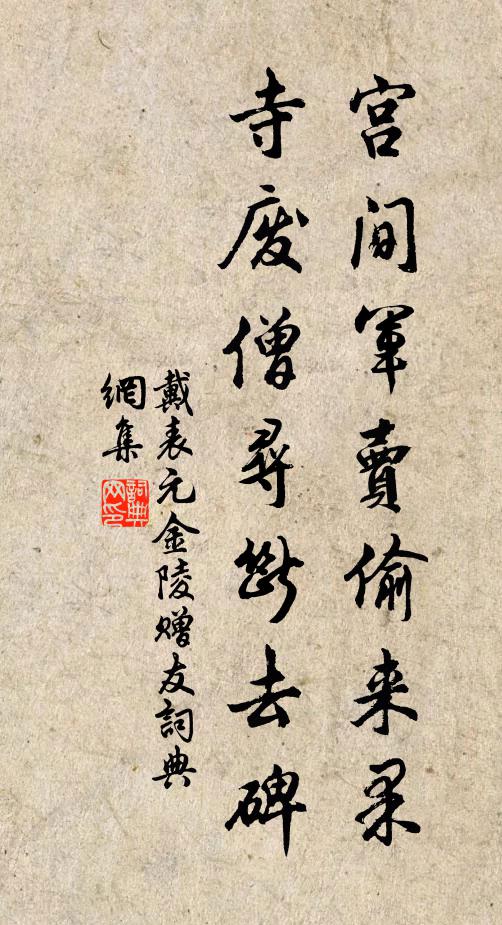 宫間軍賣偷来果
寺廢僧尋斷去碑
戴表元金陵贈友詞典
網集
詞典
网印